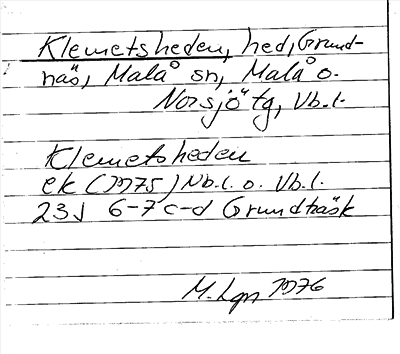 Klemetsheden, hed, Grund-
näs, Malå sn, Malå o.
Norsjö tg, Vb.l.
Klemetsheden
ek (1975) Nb.l. o. Vb.l.
23J 6-7 c-d Grundträsk
M. Lgn 1976